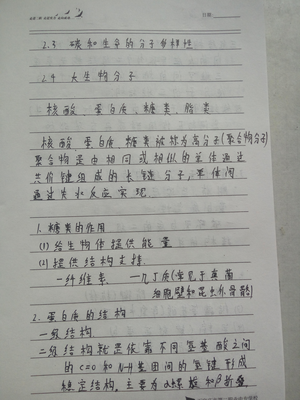 日期:
2.3 碳和生命的分子多样性
2.4 大生物分子
核酸、蛋白质、糖类、脂类
核酸、蛋白质、糖类被称为高分子(聚合物分子)
聚合物是由相同或相似的单体通过
共价键组成的长链分子,单体间
通过失水反应实现
1. 糖类的作用
(1) 给生物体提供能量
(2) 提供结构支持
—纤维素 —几丁质(常见于真菌
细胞壁和昆虫外骨骼)
2. 蛋白质的结构
一级结构
二级结构就是依靠不同氨基酸之间
的C=O和N-H基团间的氢键形成
稳定结构,主要为α螺旋和β折叠